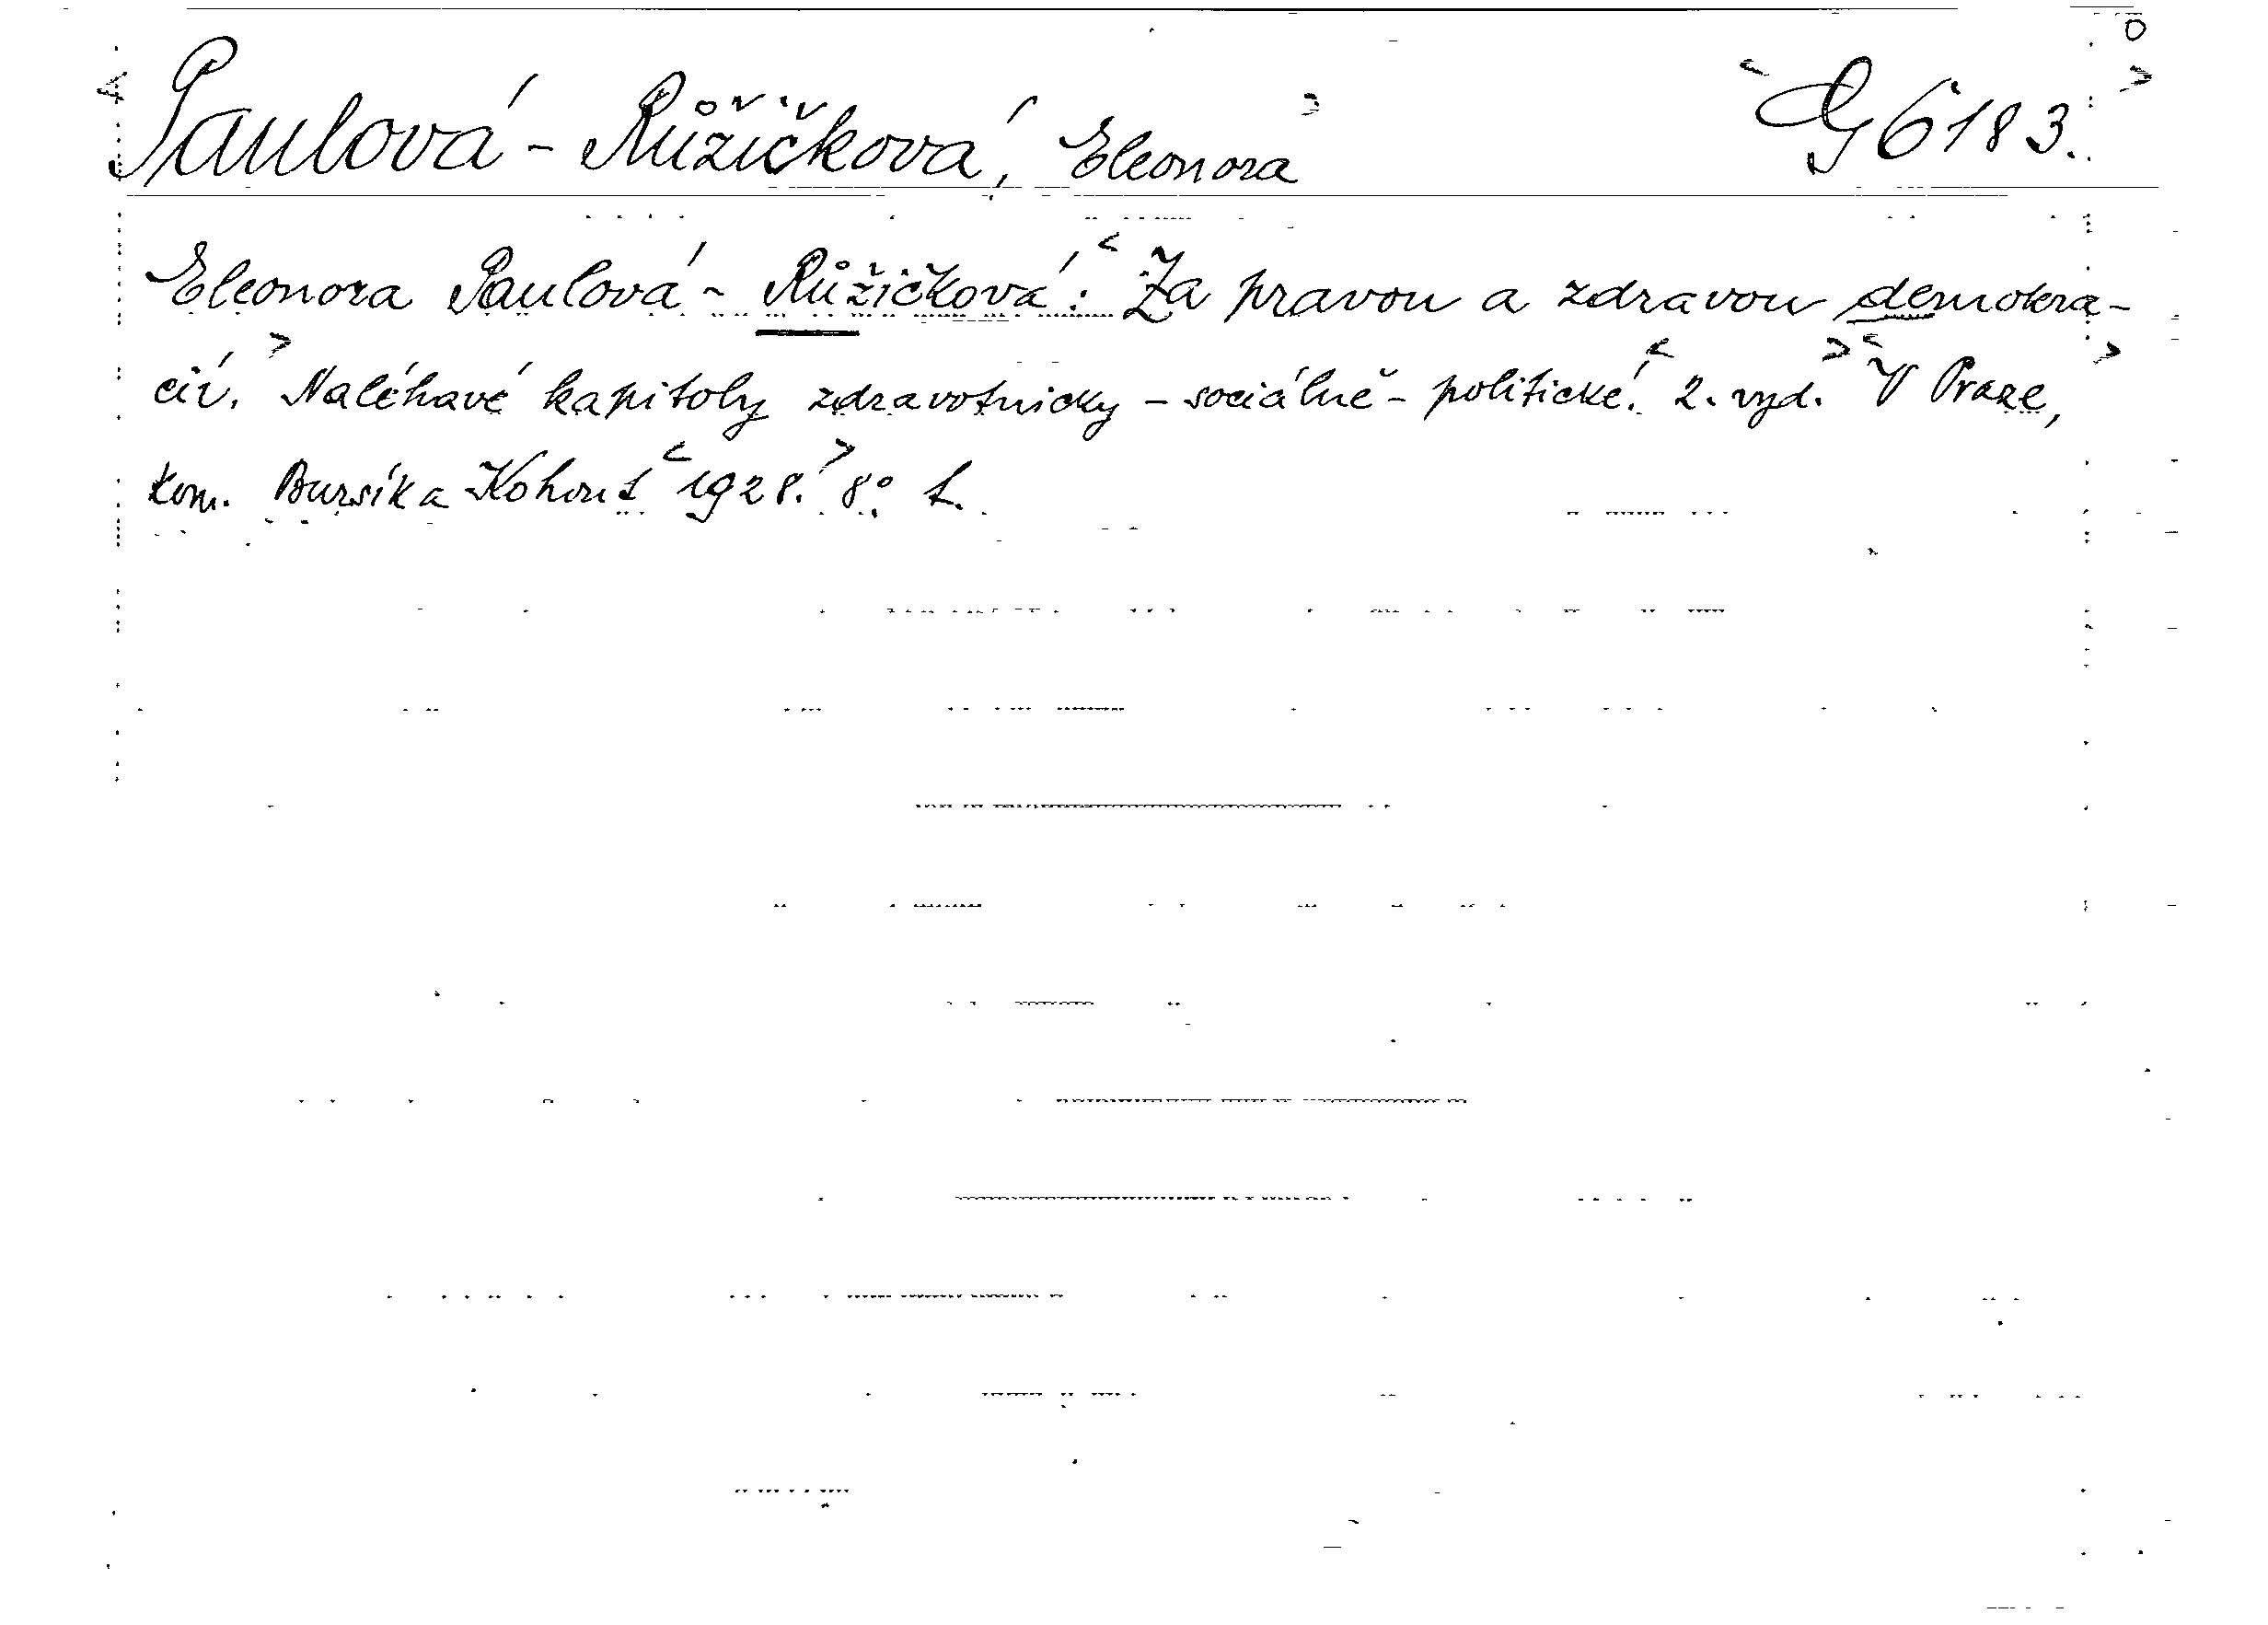 Paulová - Růžičková, Eleonora G 6183.
Eleonora Paulová - Růžičková: Za pravou a zdravou demokra-
cií. Naléhavé kapitoly zdravotnicky - sociálně - politické. 2. vyd. V Praze,
kom. Bursík a Kohout 1928. 8°.